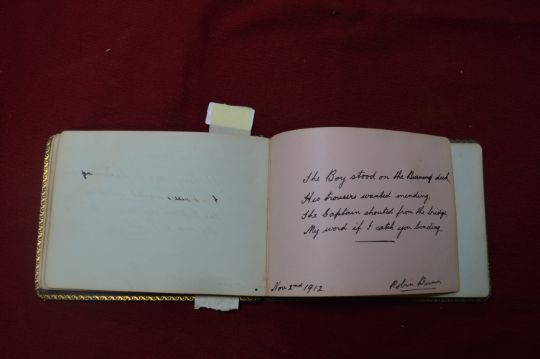 The Boy stood on the Burning deck
His trousers wanted mending,
The Captain shouted from the bridge
My word if I catch you bending.
Nov 2nd 1912.
Robin